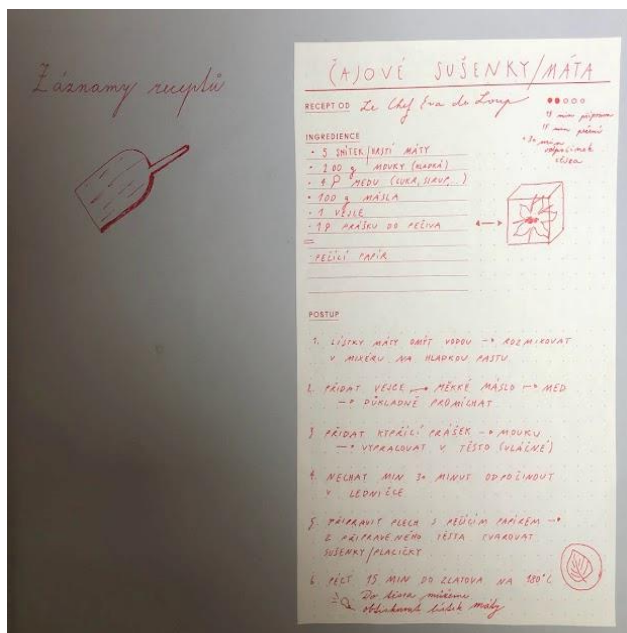 Záznamy receptů
ČAJOVÉ SUŠENKY/MÁTA
RECEPT OD Le Chef Eva de Loup
15 min
+ 30 min
odpočinek
INGREDIENCE
• 5 SNÍTEK/HRSTÍ MÁTY
• 200 g MOUKY (HLADKÁ)
MEDU (CUKR, SIRUP,...)
• 100 g MÁSLA
• 1 VEJCE
PRÁŠKU DO PEČIVA
PEČÍCÍ PAPÍR
POSTUP
1. LÍSTKY MÁTY OMÝT VODOU → ROZMIXOVAT
V MIXÉRU NA HLADKOU PASTU
2. PŘIDAT VEJCE → MĚKKÉ MÁSLO → MED
→ DŮKLADNĚ PROMÍCHAT
3. PŘIDAT KYPŘÍCÍ PRÁŠEK → MOUKU
→ VYPRACOVAT V TĚSTO (VLÁČNÉ)
4. NECHAT MIN 30 MINUT ODPOČINOUT
V LEDNIČCE
5. PŘIPRAVIT PLECH S PEČÍCÍM PAPÍREM →
Z PŘIPRAVENÉHO TĚSTA TVAROVAT
SUŠENKY/PLACIČKY
6. PÉCT 15 MIN DO ZLATOVA NA 180°C
Do těsta můžeme
obtisknout lístek máty